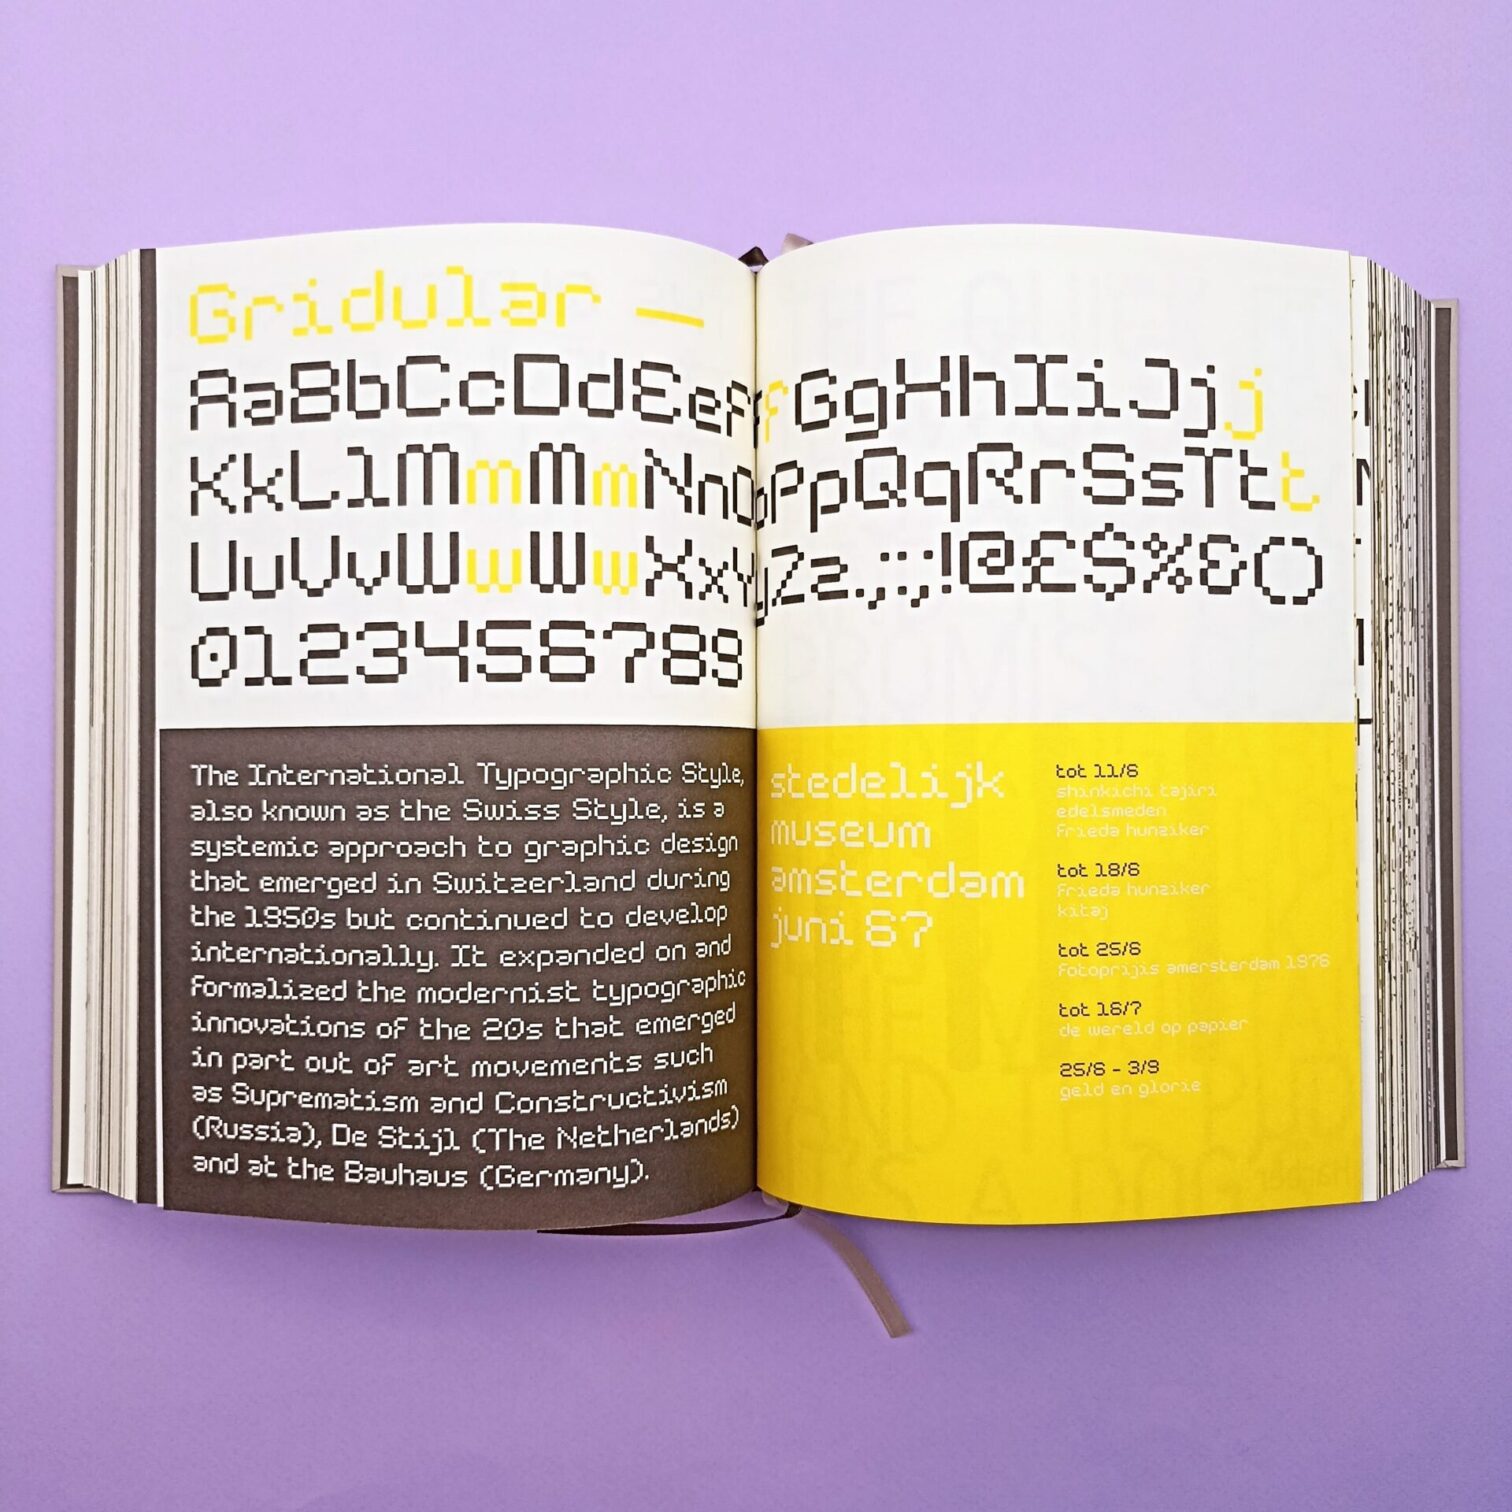 Gridular —
AaBbCcDdEeFffGgHhIiJjj
KkLlMmMmNnOoPpQqRrSsTtt
UuVvWwWwXxYyZz.,:;!@£$%&()
0123456789
The International Typographic Style,
also known as the Swiss Style, is a
systemic approach to graphic design
that emerged in Switzerland during
the 1950s but continued to develop
internationally. It expanded on and
formalized the modernist typographic
innovations of the 20s that emerged
in part out of art movements such
as Suprematism and Constructivism
(Russia), De Stijl (The Netherlands)
and at the Bauhaus (Germany).
stedelijk
museum
amsterdam
juni 67
tot 11/6
shinkichi tajiri
edelsmeden
frieda hunziker
tot 18/6
frieda hunziker
kitaj
tot 25/6
fotoprijis amersterdam 1976
tot 16/7
de wereld op papier
25/6 - 3/9
geld en glorie